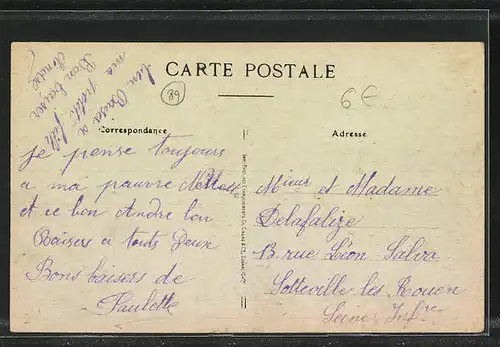 CARTE POSTALE
89
6€
Correspondance
Adresse
bon Baiser a
ma petit fille
Bon baiser
Andre
je pense toujours
a ma pauvre
et ce bon Andre bon
Baisers a touts Deux
Bons baisers de
Paulette
Mieur et Madame
Delafalize
13. rue Léon Salva
Sotteville les Rouen
Seine Infre